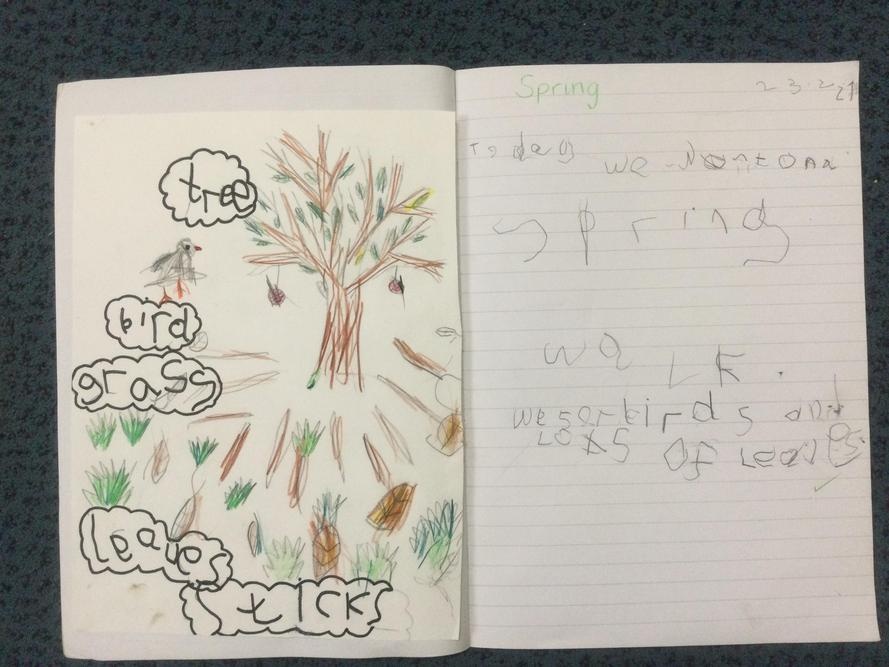 tree
bird
grass
leaves
sticks
Spring 2 3 2 21
Today we wont ona
spring
walk.
we sor birds and
lots of leaves